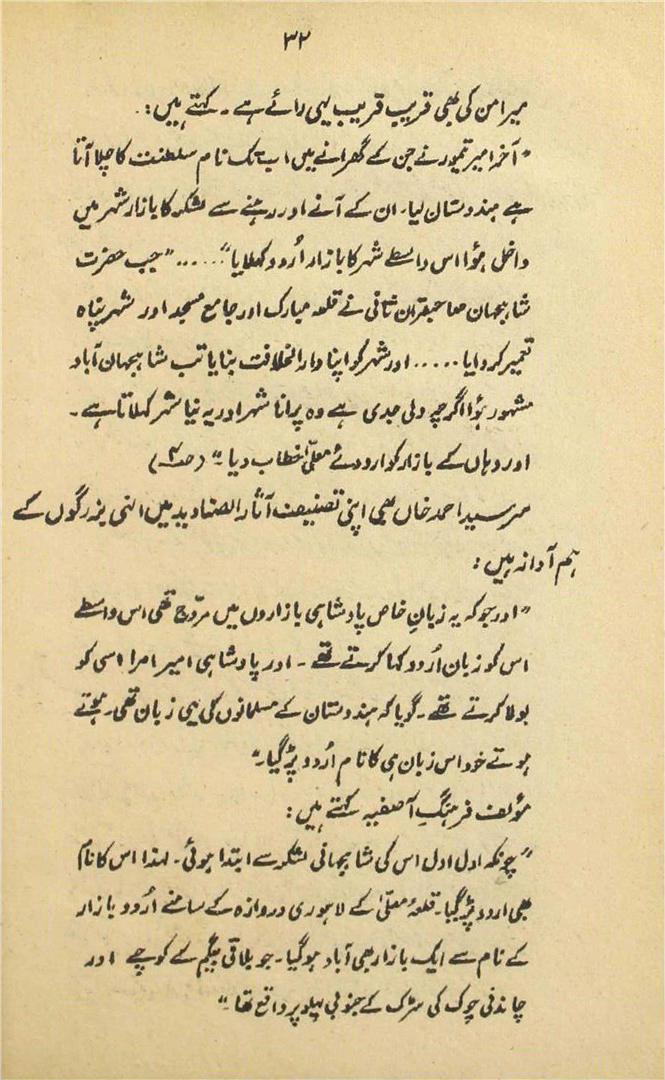 ۳۲
میر امن کی بھی قریب قریب یہی رائے ہے۔ کہتے ہیں:
"آخر امیر تیمور نے جن کے گھرانے میں اب تک نام سلطنت کا چلا آتا
ہے ہندوستان لیا۔ ان کے آنے اور رہنے سے لشکر کا بازار شہر میں
داخل ہؤا اس واسطے شہر کا بازار اُردو کہلایا"..... "جب حضرت
شاہجہان صاحبقران ثانی نے قلعہ مبارک اور جامع مسجد اور شہر پناہ
تعمیر کروایا ..... اور شہر کو اپنا دار الخلافت بنایا تب شاہجہان آباد
مشہور ہؤا اگرچہ دلی جدی ہے وہ پرانا شہر اور یہ نیا شہر کہلاتا ہے۔
اور وہاں کے بازار کو اردوئے معلیٰ خطاب دیا۔" (صـ۴)
سرسید احمد خاں بھی اپنی تصنیف آثار الصنادید میں انہی بزرگوں کے
ہم آواز ہیں:
"اور جو کہ یہ زبان خاص پادشاہی بازاروں میں مروّج تھی اس واسطے
اس کو زبان اُردو کہا کرتے تھے۔ اور پادشاہی امیر امرا اسی کو
بولا کرتے تھے۔ گویا کہ ہندوستان کے مسلمانوں کی یہی زبان تھی۔ ہوتے
ہوتے خود اس زبان ہی کا نام اُردو پڑ گیا۔"
مؤلف فرہنگِ آصفیہ کہتے ہیں:
"چونکہ اول اول اس کی شاہجہانی لشکر سے ابتدا ہوئی۔ لہذا اس کا نام
بھی اردو پڑ گیا۔ قلعۂ معلّیٰ کے لاہوری دروازہ کے سامنے اُردو بازار
کے نام سے ایک بازار بھی آباد ہو گیا۔ جو بلاقی بیگم کے کوچے اور
چاندنی چوک کی سڑک کے جنوبی پہلو پر واقع تھا۔"